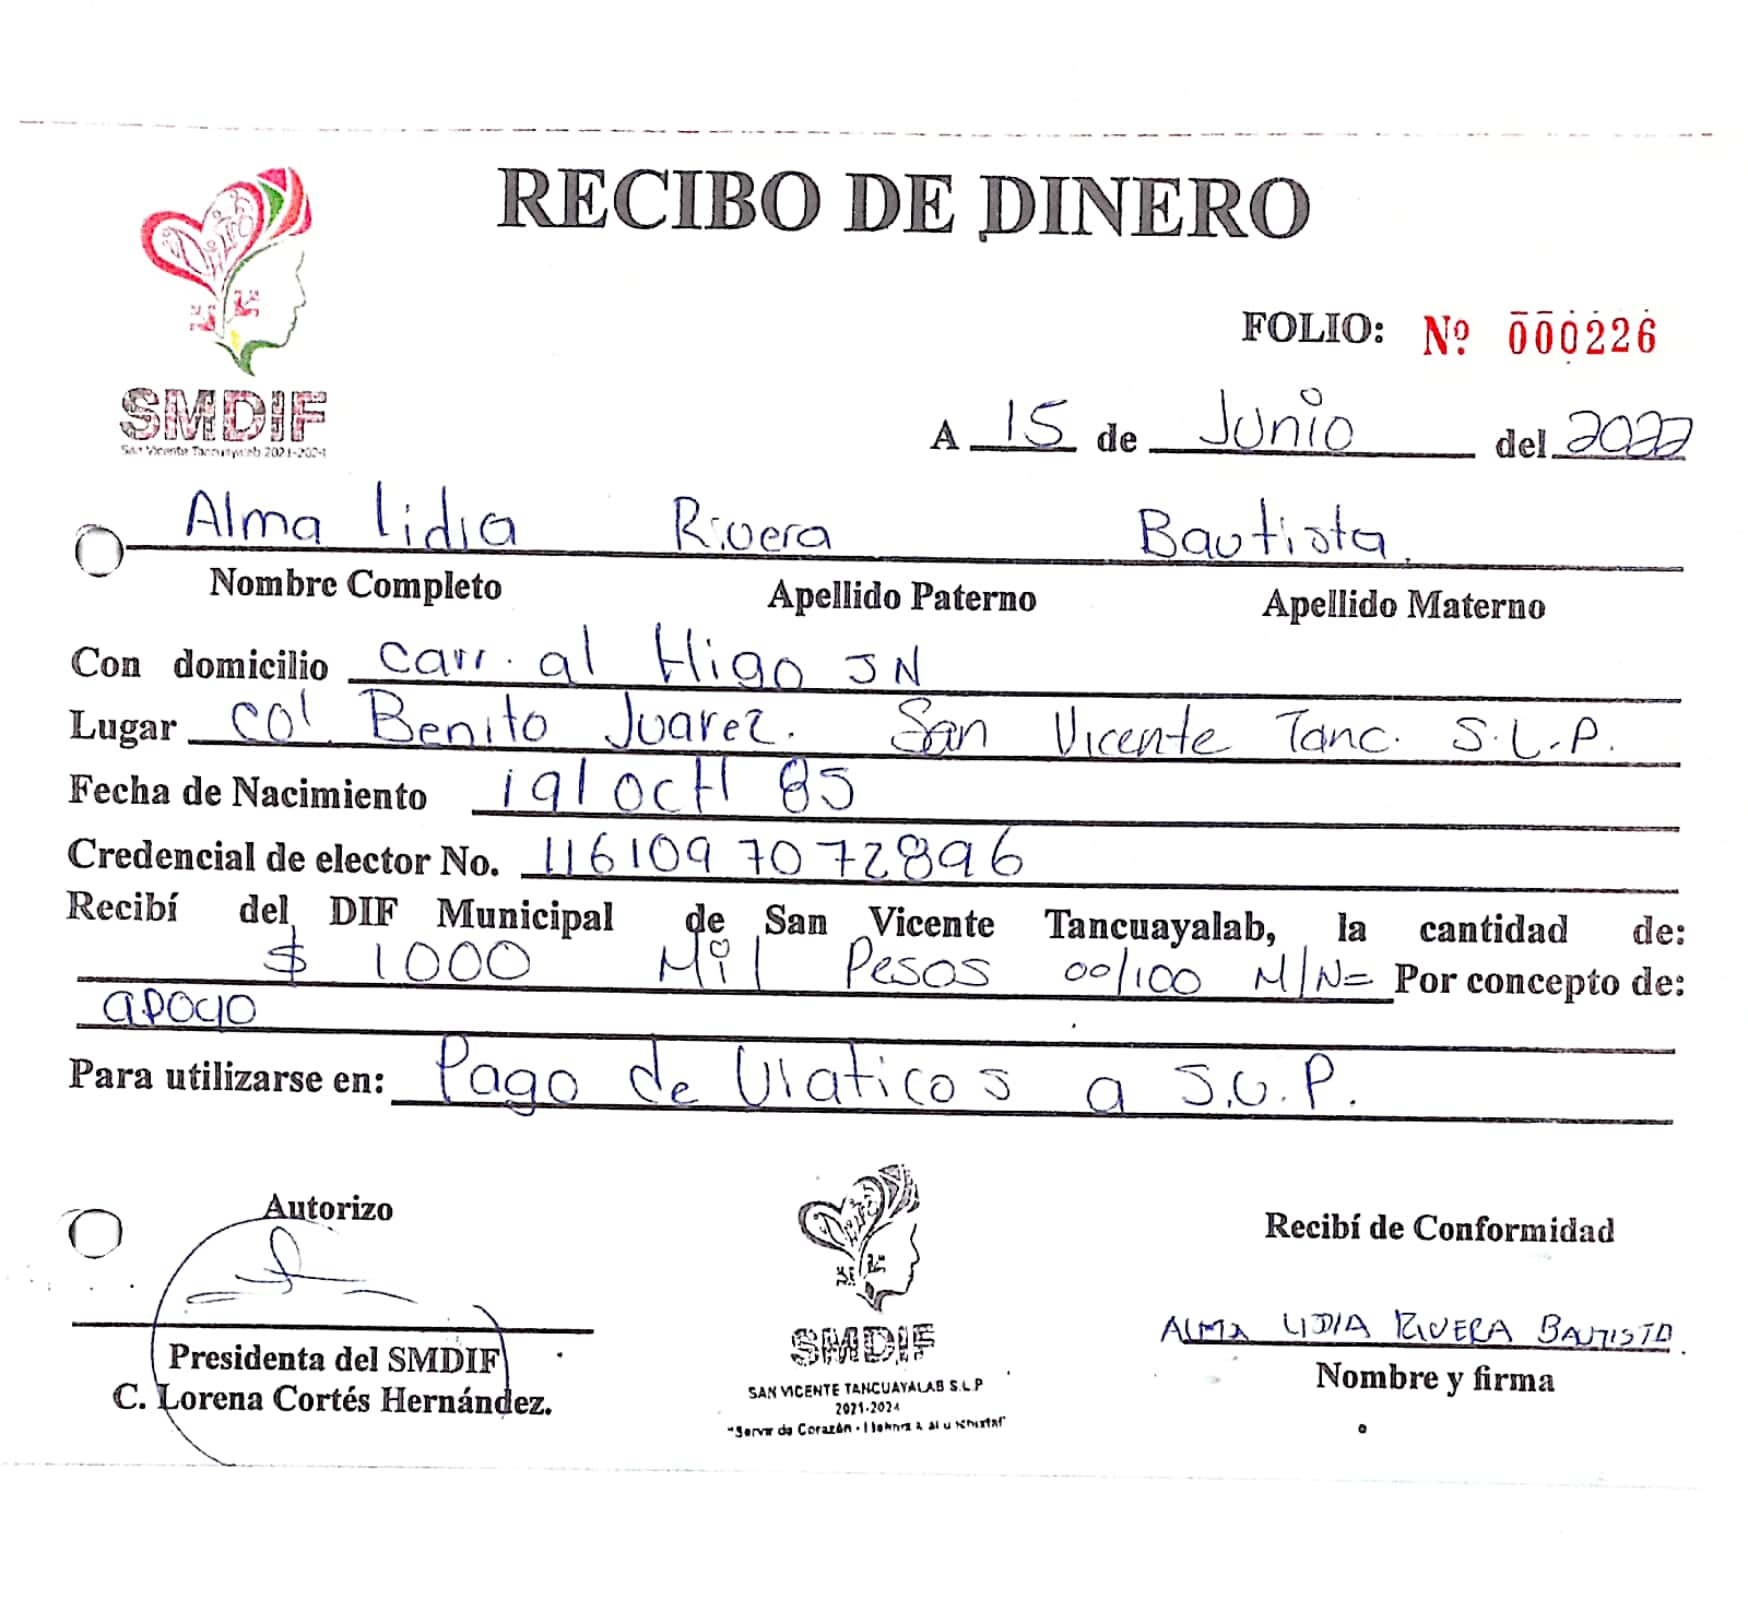 RECIBO DE DINERO
FOLIO: Nº 000226
SMDIF
San Vicente Tancuayalab 2021-2024
A 15 de Junio del 2022
Alma Lidia Rivera Bautista
Nombre Completo Apellido Paterno Apellido Materno
Con domicilio Carr. al Higo SN
Lugar Col. Benito Juarez. San Vicente Tanc. S.L.P.
Fecha de Nacimiento 19/Oct/ 85
Credencial de elector No. 1161097072896
Recibí del DIF Municipal de San Vicente Tancuayalab, la cantidad de:
$ 1000 Mil Pesos 00/100 M/N= Por concepto de:
apoyo
Para utilizarse en: Pago de Viaticos a S.L.P.
Autorizo
Recibí de Conformidad
ALMA LIDIA RIVERA BAUTISTA
Presidenta del SMDIF
C. Lorena Cortés Hernández.
SMDIF
SAN VICENTE TANCUAYALAB S.L.P
2021-2024
"Servir de Corazón
Nombre y firma